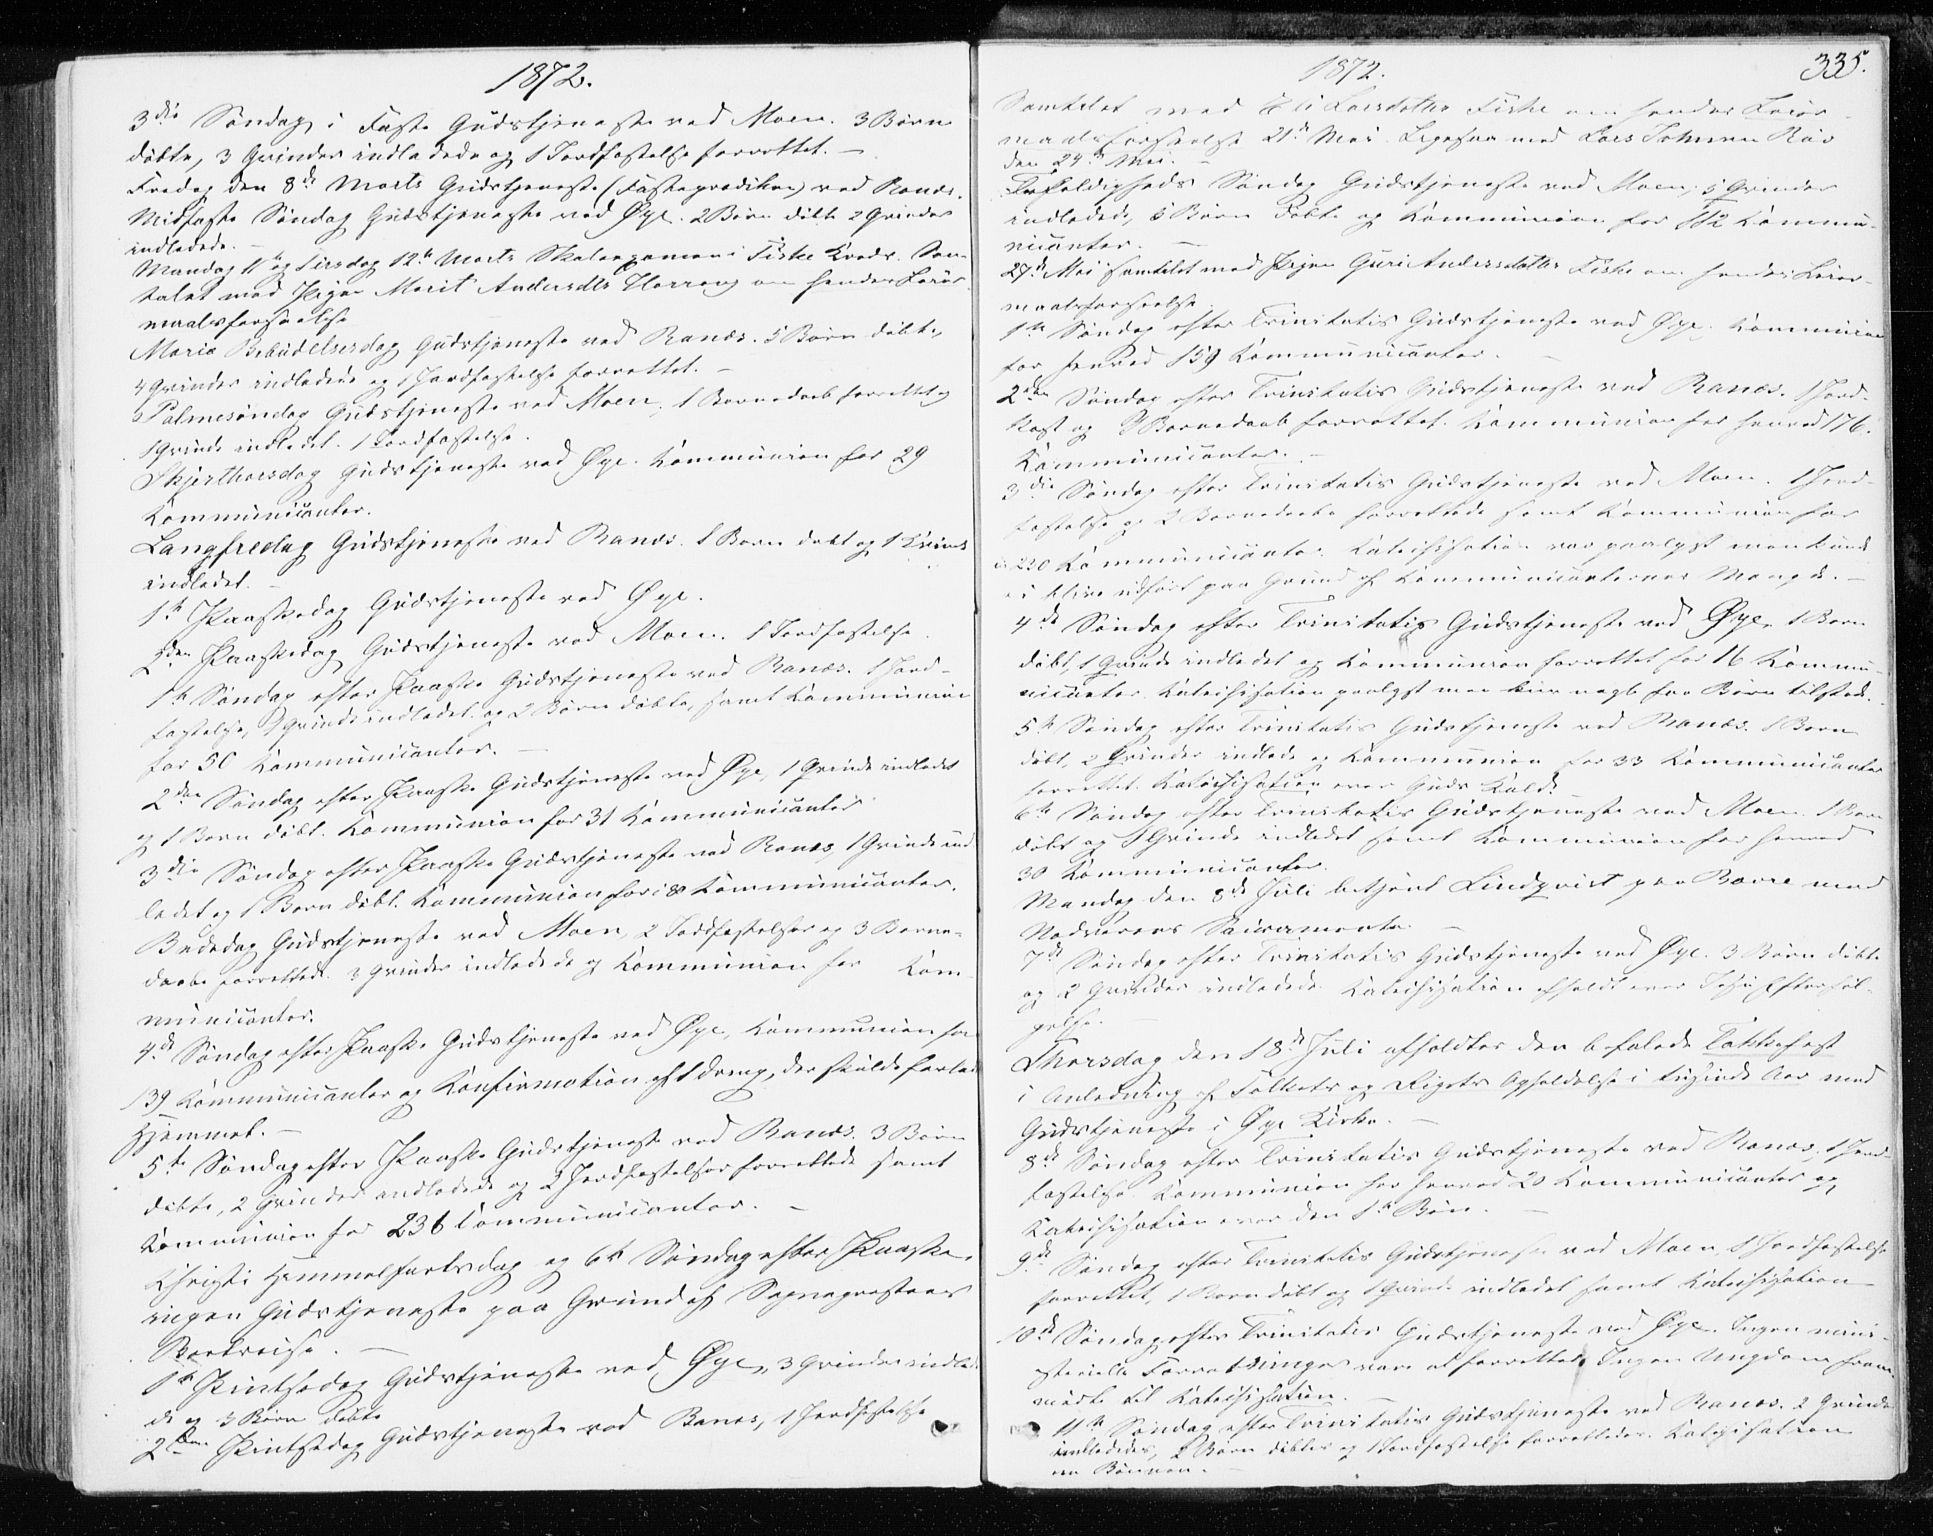 1872.
3die Søndag i Faste Gudstjeneste ved Moen. 3 Børn
døbte, 3 Qvinder indledede og 1 Jordfæstelse forrettet. —
Fredag den 8de Marts Gudstjeneste (Fasteprædiken) ved Ranæs.
Midfaste Søndag Gudstjeneste ved Øye. 2 Børn døbte 2 Qvinder
indledede. —
Mandag 11te og Tirsdag 12te Marts Skoleexamen i Fiske Kreds. Sam-
talet med Pigen Marit Andersdtr om hendes Leier-
maalsforseelse
Mariæ Bebudelsesdag Gudstjeneste ved Ranæs. 5 Børn døbte,
4 Qvinder indledede og 1 Jordfæstelse forrettet. —
Palmesøndag Gudstjeneste ved Moen, 1 Barnedaab forrettet og
1 Qvinde indledet. 1 Jordfæstelse.
Skjærthorsdag Gudstjeneste ved Øye. Kommunion for 29
Kommunicanter.
Langfredag Gudstjeneste ved Ranæs. 1 Barn døbt og 1 Kvinde
indledet. —
1ste Paaskedag Gudstjeneste ved Øye.
2den Paaskedag Gudstjeneste ved Moen. 1 Jordfæstelse.
1ste Søndag efter Paaske Gudstjeneste ved Ranæs. 1 Jord-
fæstelse, 1 Qvinde indledet og 2 Børn døbte, samt Kommunion
for 50 Kommunicanter. —
2den Søndag efter Paaske Gudstjeneste ved Øye, 1 Qvinde indledet
og 1 Barn døbt. Kommunion for 31 Kommunicanter
3die Søndag efter Paaske Gudstjeneste ved Ranæs, 1 Qvinde ind-
ledet og 1 Barn døbt. Kommunion for 180 Kommunicanter.
Bededag Gudstjeneste ved Moen, 2 Jordfæstelser og 3 Barne-
daabe forrettede. 3 Qvinder indledede og Kommunion for Kom-
municanter.
4de Søndag efter Paaske Gudstjeneste ved Øye, Kommunion for
139 Kommunicanter og Konfirmation af 1 dreng, der skulde forlade
Hjemmet. —
5te Søndag efter Paaske Gudstjeneste ved Ranæs. 3 Børn
døbte, 2 Qvinder indledede og 2 Jordfæstelser forrettede samt
Kommunion for 236 Kommunicanter. —
Christi Himmelfartsdag og 6te Søndag efter Paaske
ingen Gudstjeneste paa Grund af Sognepræstens
Bortreise. —
1ste Pintsedag Gudstjeneste ved Øye, 3 Qvinder indlede-
de og 3 Børn døbte
2den Pintsedag Gudstjeneste ved Ranæs, 1 Jordfæstelse
1872.
335.
Samtalet med Larsdatter Fiske om hendes Leier-
maalsforseelse 21de Mai. Ligesaa med Lars Johnsen
den 24de Mai. —
Trefoldigheds Søndag Gudstjeneste ved Moen, 5 Qvinder
indledede, 5 Børn døbte og Kommunion for 112 Kommu-
nicanter. —
27de Mai samtalet med Pigen Guri Andersdatter Fiske om hendes Leier-
maalsforseelse.
1ste Søndag efter Trinitatis Gudstjeneste ved Øye. Kommunion
for henved 159 Kommunicanter. —
2den Søndag efter Trinitatis Gudstjeneste ved Ranæs. 1 Jord-
kast og 3 Barnedaab forrettet. Kommunion for henved 176
Kommunicanter. —
3die Søndag efter Trinitatis Gudstjeneste ved Moen. 1 Jord-
fæstelse og 2 Barnedaabe forrettede samt Kommunion for
220 Kommunicanter. Katechisation var paalyst men kunde
ei blive udført paa Grund af Kommunicanternes Mængde. —
4de Søndag efter Trinitatis Gudstjeneste ved Øye, 1 Barn
døbt, 1 Qvinde indledet og Kommunion forrettet for 16 Kommu-
nicanter. Katechisation paalyst men kun nogle faa Børn tilstede.
5te Søndag efter Trinitatis Gudstjeneste ved Ranæs. 1 Barn
døbt, 2 Qvinder indlede og Kommunion for 33 Kommunicanter
forrettet. Katechisation over Guds Kald.
6te Søndag efter Trinitatis Gudstjeneste ved Moen. 1 Barn
døbt og 1 Qvinde indledet samt Kommunion for henved
30 Kommunicanter.
Mandag den 8de Juli betjent Lindqvist paa Bævre med
Nadverens Sacramente. —
7de Søndag efter Trinitatis Gudstjeneste ved Øye. 3 Børn døbte
og 2 Qvinder indledede. Katechisation afholdt over Jesu Efterføl-
gelse. —
Thorsdag den 18de Juli afholdtes den befalede Takkefest
i Anledning af Folkets og Rigets Opholdelse i tusinde Aar med
Gudstjeneste i Øye Kirke. —
8de Søndag efter Trinitatis Gudstjeneste ved Ranæs, 1 Jord-
fæstelse. Kommunion for henved 20 Kommunicanter og
Katechisation over den 1ste Bøn. —
9de Søndag efter Trinitatis Gudstjeneste ved Moen, 1 Jordfæstelse
forrettet, 1 Barn døbt og 1 Qvinde indledet samt Katechisation
10de Søndag efter Trinitatis Gudstjeneste ved Øye. Ingen mini-
sterielle Forretninger vare at forrette. Ingen Ungdom frem-
mødte til Katechisation. —
11te Søndag efter Trinitatis Gudstjeneste ved Ranæs. 2 Qvinder
indlededes, 2 Børn døbtes og 1 Jordfæstelse forrettedes. Katechisation
om Bønnen. —